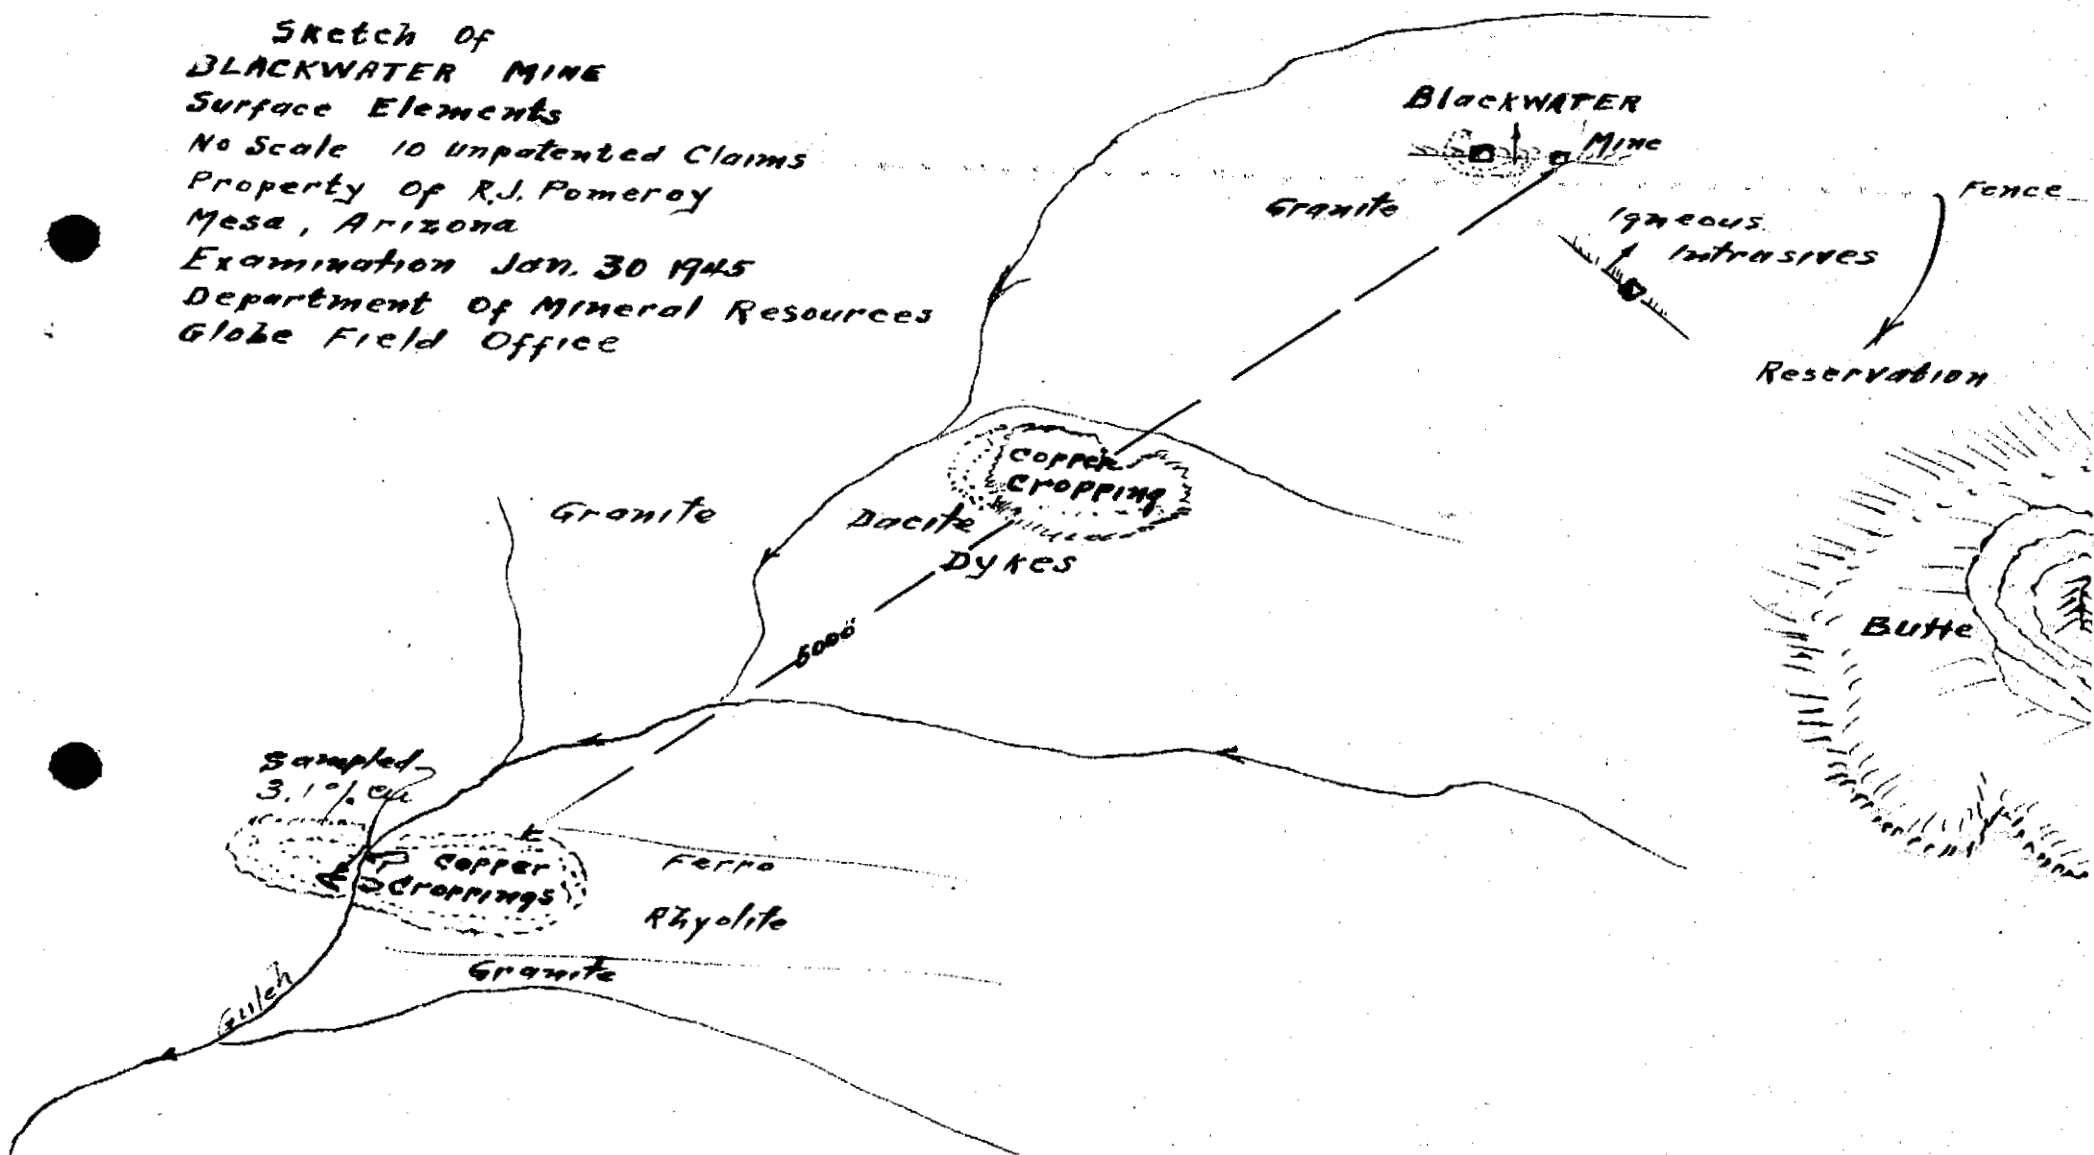 Sketch Of
BLACKWATER MINE
Surface Elements
No Scale 10 Unpatented Claims
Property Of R.J. Pomeroy
Mesa, Arizona
Examination Jan. 30 1945
Department Of Mineral Resources
Globe Field Office
BlackWATER
Mine
Fence
Granite
Igneous
Intrasives
Reservation
Copper
Cropping
Granite
Dacite
Dykes
5000'
Butte
Sampled
3.1% cu
Copper
Croppings
Ferro
Rhyolite
Granite
Gulch